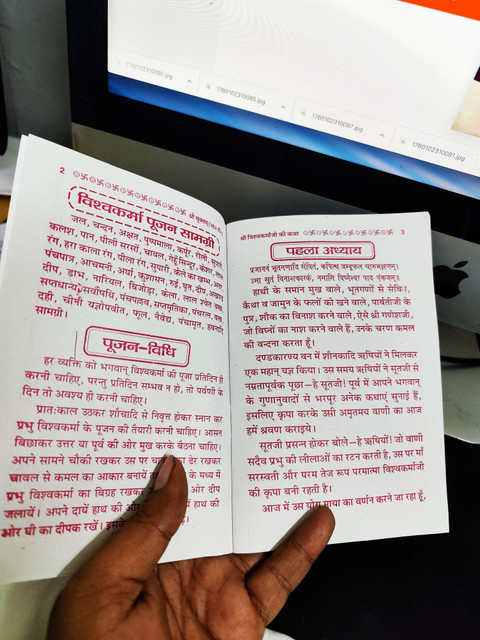 1760102310080.jpg
1760102310089.jpg
1760102310097.jpg
1760102310081.jpg
२
विश्वकर्मा पूजन सामग्री
जल, चन्दन, अक्षत, पुष्पमाला, कर्पूर, रोली, सुपारी
कलश, पान, पीली सरसों, चावल, गेहूँ
रंग, हरा काला रंग, पीला रंग, सुपारी, केले का खम्भा, आम
पंचपात्र, आचमनी, अर्घा, कुशासन, रुई, घृत, दीप,
दीप, डाभ, नारियल, बिजोड़ा, केला, लाल श्वेत वस्त्र
सप्तधान्य, सर्वौषधि, पंचपल्लव, सप्तमृतिका, पंचरत्न,
दही, चीनी यज्ञोपवीत, फूल, नैवेद्य, पंचामृत, हवनादि
सामग्री।
पूजन-विधि
हर व्यक्ति को भगवान् विश्वकर्मा की पूजा प्रतिदिन ही
करनी चाहिए, परन्तु प्रतिदिन सम्भव न हो, तो पर्वणी के
दिन तो अवश्य ही करनी चाहिए।
प्रातःकाल उठकर शौचादि से निवृत्त होकर स्नान कर
प्रभु विश्वकर्मा के पूजन की तैयारी करनी चाहिए। आसन
बिछाकर उत्तर या पूर्व की ओर मुख करके बैठना चाहिए।
अपने सामने चौकी रखकर उस पर का ढेर रखकर
चावल से कमल का आकार बनायें के मध्य में
प्रभु विश्वकर्मा का विग्रह रखकर ओर दीप
जलायें। अपने दायें हाथ की ओर हाथ की
ओर घी का दीपक रखें।
श्री विश्वकर्माजी की कथा
३
पहला अध्याय
गजाननं भूतगणादि सेवितं, कपित्थ जम्बूफल चारुभक्षणम्।
उमा सुतं विनाशकारकं, नमामि विघ्नेश्वर पाद पंकजम्॥
हाथी के समान मुख वाले, भूतगणों से सेवित,
कैथा व जामुन के फलों को खाने वाले, पार्वतीजी के
पुत्र, शोक का विनाश करने वाले, ऐसे श्री गणेशजी,
जो विघ्नों का नाश करने वाले हैं, उनके चरण कमल
की वन्दना करता हूँ।
दण्डकारण्य वन में शौनकादि ऋषियों ने मिलकर
एक महान् यज्ञ किया। उस समय ऋषियों ने सूतजी से
नम्रतापूर्वक पूछा—हे सूतजी! पूर्व में आपने भगवान्
के गुणानुवादों से भरपूर अनेक कथाएं सुनाई हैं,
इसलिए कृपा करके उसी अमृतमय वाणी का आज
हमें श्रवण कराइये।
सूतजी प्रसन्न होकर बोले—हे ऋषियों! जो वाणी
सदैव प्रभु की लीलाओं का रटन करती है, उस पर माँ
सरस्वती और परम तेज रूप परमात्मा विश्वकर्माजी
की कृपा बनी रहती है।
आज मैं उस योग माया का वर्णन करने जा रहा हूँ,